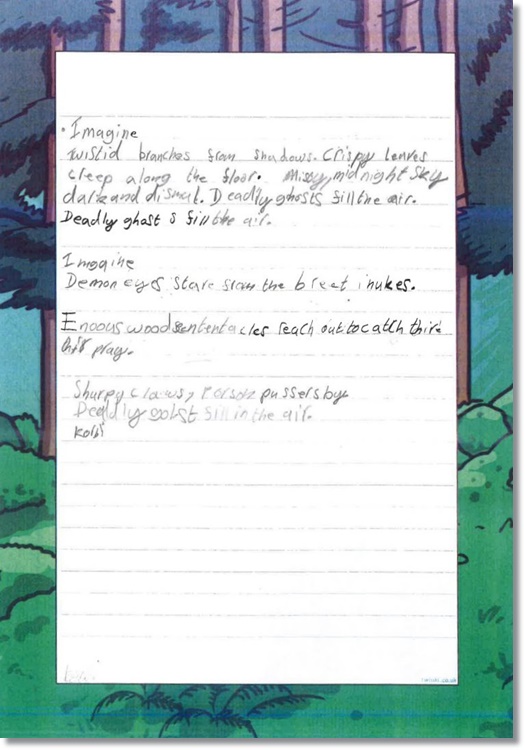 Imagine
twistid branches from shadows. Crispy leaves
creep along the floor. Missy, midnight sky
dark and dismal. Deadly ghosts fill the air.
Deadly ghosts fill the air.
Imagine
Demon eyes stare from the
Enoous wooden tentacles reach out to catch thire
pray.
Sharpy claows, poison passers by
Deadly gohst fill in the air.